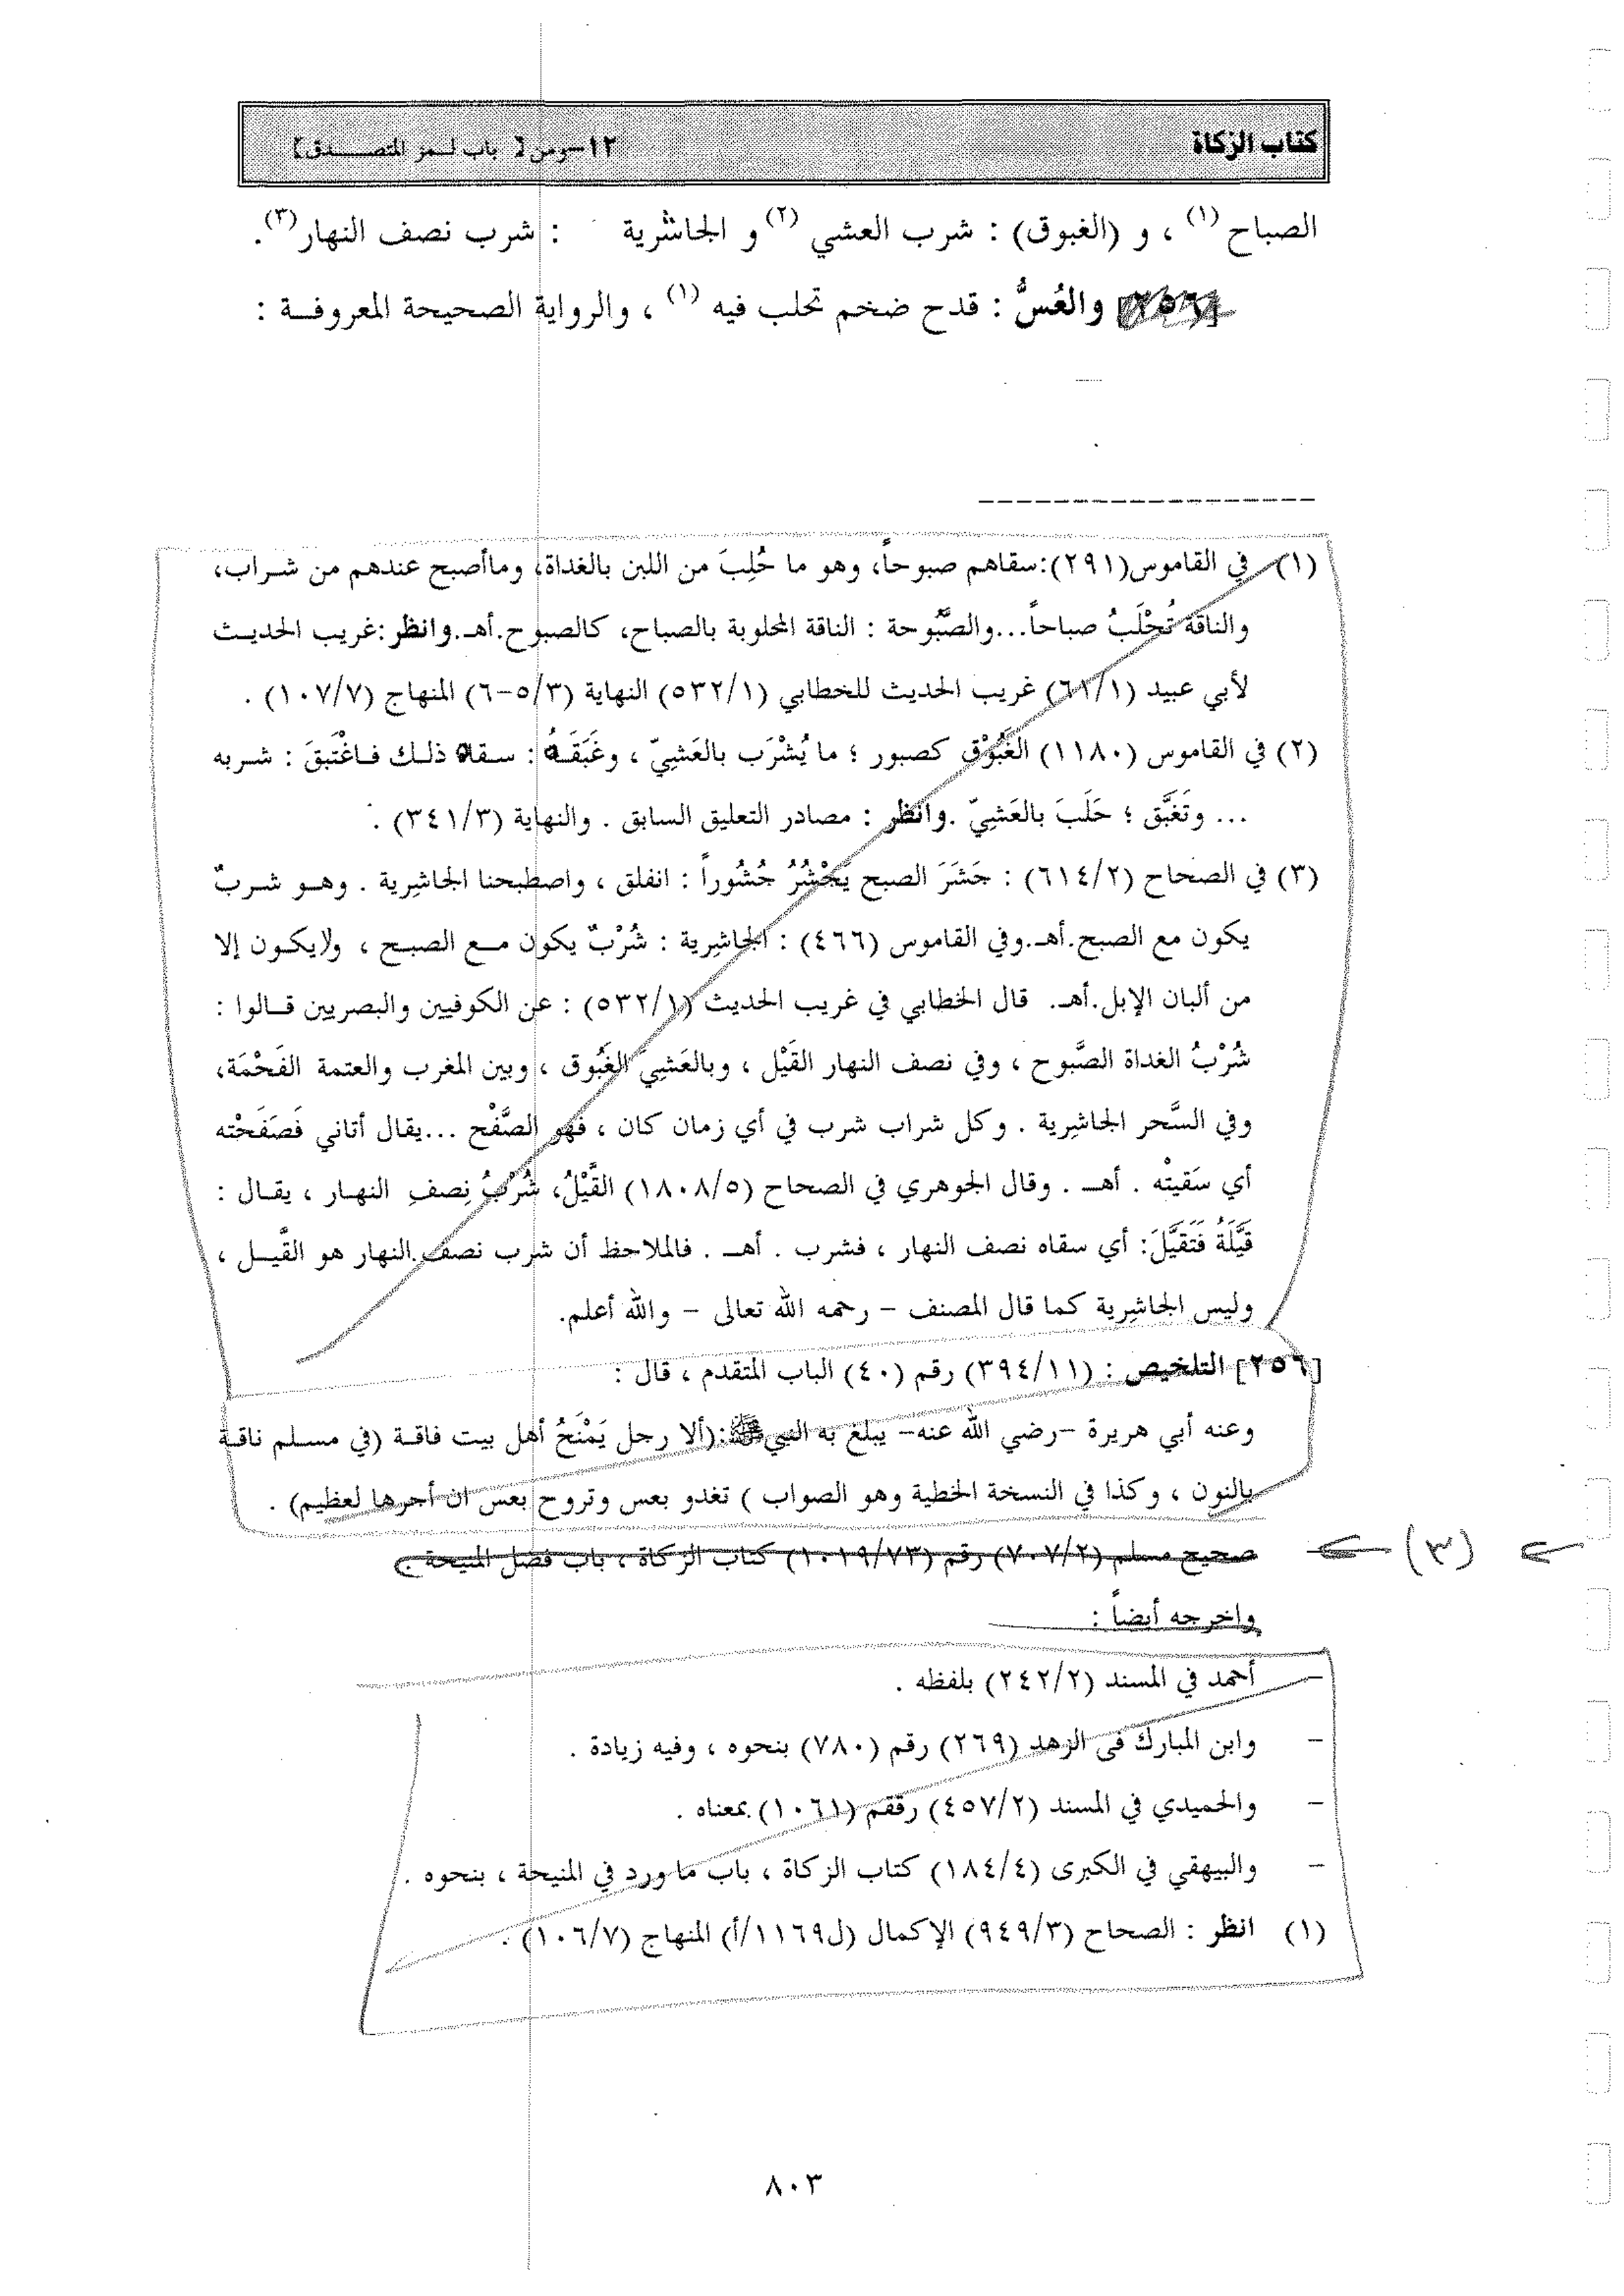 كتاب الزكاة
١٢-ومن [ باب لـمز المتصـــدق ]
الصباح (١) ، و (الغبوق) : شرب العشي (٢) و الجاشرية : شرب نصف النهار (٣).
[٢٥٦] والعُسُّ : قدح ضخم تحلب فيه (١) ، والرواية الصحيحة المعروفـــة :
(١) في القاموس(٢٩١):سقاهم صبوحاً، وهو ما حُلِبَ من اللبن بالغداة، وماأصبح عندهم من شـراب،
والناقة تُحْلَبُ صباحاً...والصَّبُوحة : الناقة المحلوبة بالصباح، كالصبوح.أهـ.وانظر:غريب الحديـث
لأبي عبيد (٦١/١) غريب الحديث للخطابي (٥٣٢/١) النهاية (٥/٣-٦) المنهاج (١٠٧/٧) .
(٢) في القاموس (١١٨٠) الغَبُوْق كصبور ؛ ما يُشْرَب بالعَشِيّ ، وغَبَقَـهُ : سـقاه ذلـك فـاغْتَبقَ : شـربه
... وتَغَبَّق ؛ حَلَبَ بالعَشِيّ .وانظر : مصادر التعليق السابق . والنهاية (٣٤١/٣) .
(٣) في الصحاح (٦١٤/٢) : جَشَرَ الصبح يَجْشُرُ جُشُوراً : انفلق ، واصطبحنا الجاشِرية . وهـو شـربٌ
يكون مع الصبح.أهـ.وفي القاموس (٤٦٦) : الجاشِرية : شُرْبٌ يكون مـع الصبـح ، ولايكـون إلا
من ألبان الإبل.أهـ. قال الخطابي في غريب الحديث (٥٣٢/١) : عن الكوفيين والبصريين قـالوا :
شُرْبُ الغداة الصَّبوح ، وفي نصف النهار القَيْل ، وبالعَشِيّ الغَبُوق ، وبين المغرب والعتمة الفَحْمَة،
وفي السَّحر الجاشِرية . وكل شراب شرب في أي زمان كان ، فهو الصَّفْح ...يقال أتاني فَصَفَحْته
أي سَقيتْه . أهـ . وقال الجوهري في الصحاح (١٨٠٨/٥) القَيْلُ، شُرْبُ نِصفِ النهـار ، يقـال :
قَيَّلَهُ فَتَقَيَّلَ: أي سقاه نصف النهار ، فشرب . أهـ . فالملاحظ أن شرب نصف النهار هو القَيـل ،
وليس الجاشِرية كما قال المصنف - رحمه الله تعالى - والله أعلم.
[٢٥٦] التلخيص : (٣٩٤/١١) رقم (٤٠) الباب المتقدم ، قال :
وعنه أبي هريرة -رضي الله عنه- يبلغ به النبي ﷺ:(ألا رجل يَمْنَحُ أهل بيت فاقـة (في مسـلم ناقـة
بالنون ، وكذا في النسخة الخطية وهو الصواب ) تغدو بعس وتروح بعس ان أجرها لعظيم) .
→ (٣) → صحيح مسلم (٧٠٧/٢) رقم (١٠١٩/٧٣) كتاب الزكاة ، باب فضل المنيحة .
واخرجه أيضاً :
- أحمد في المسند (٢٤٢/٢) بلفظه .
- وابن المبارك في الزهد (٢٦٩) رقم (٧٨٠) بنحوه ، وفيه زيادة .
- والحميدي في المسند (٤٥٧/٢) رققم (١٠٦١) بمعناه .
- والبيهقي في الكبرى (١٨٤/٤) كتاب الزكاة ، باب ما ورد في المنيحة ، بنحوه .
(١) انظر : الصحاح (٩٤٩/٣) الإكمال (ل١١٦٩/أ) المنهاج (١٠٦/٧) .
٨٠٣